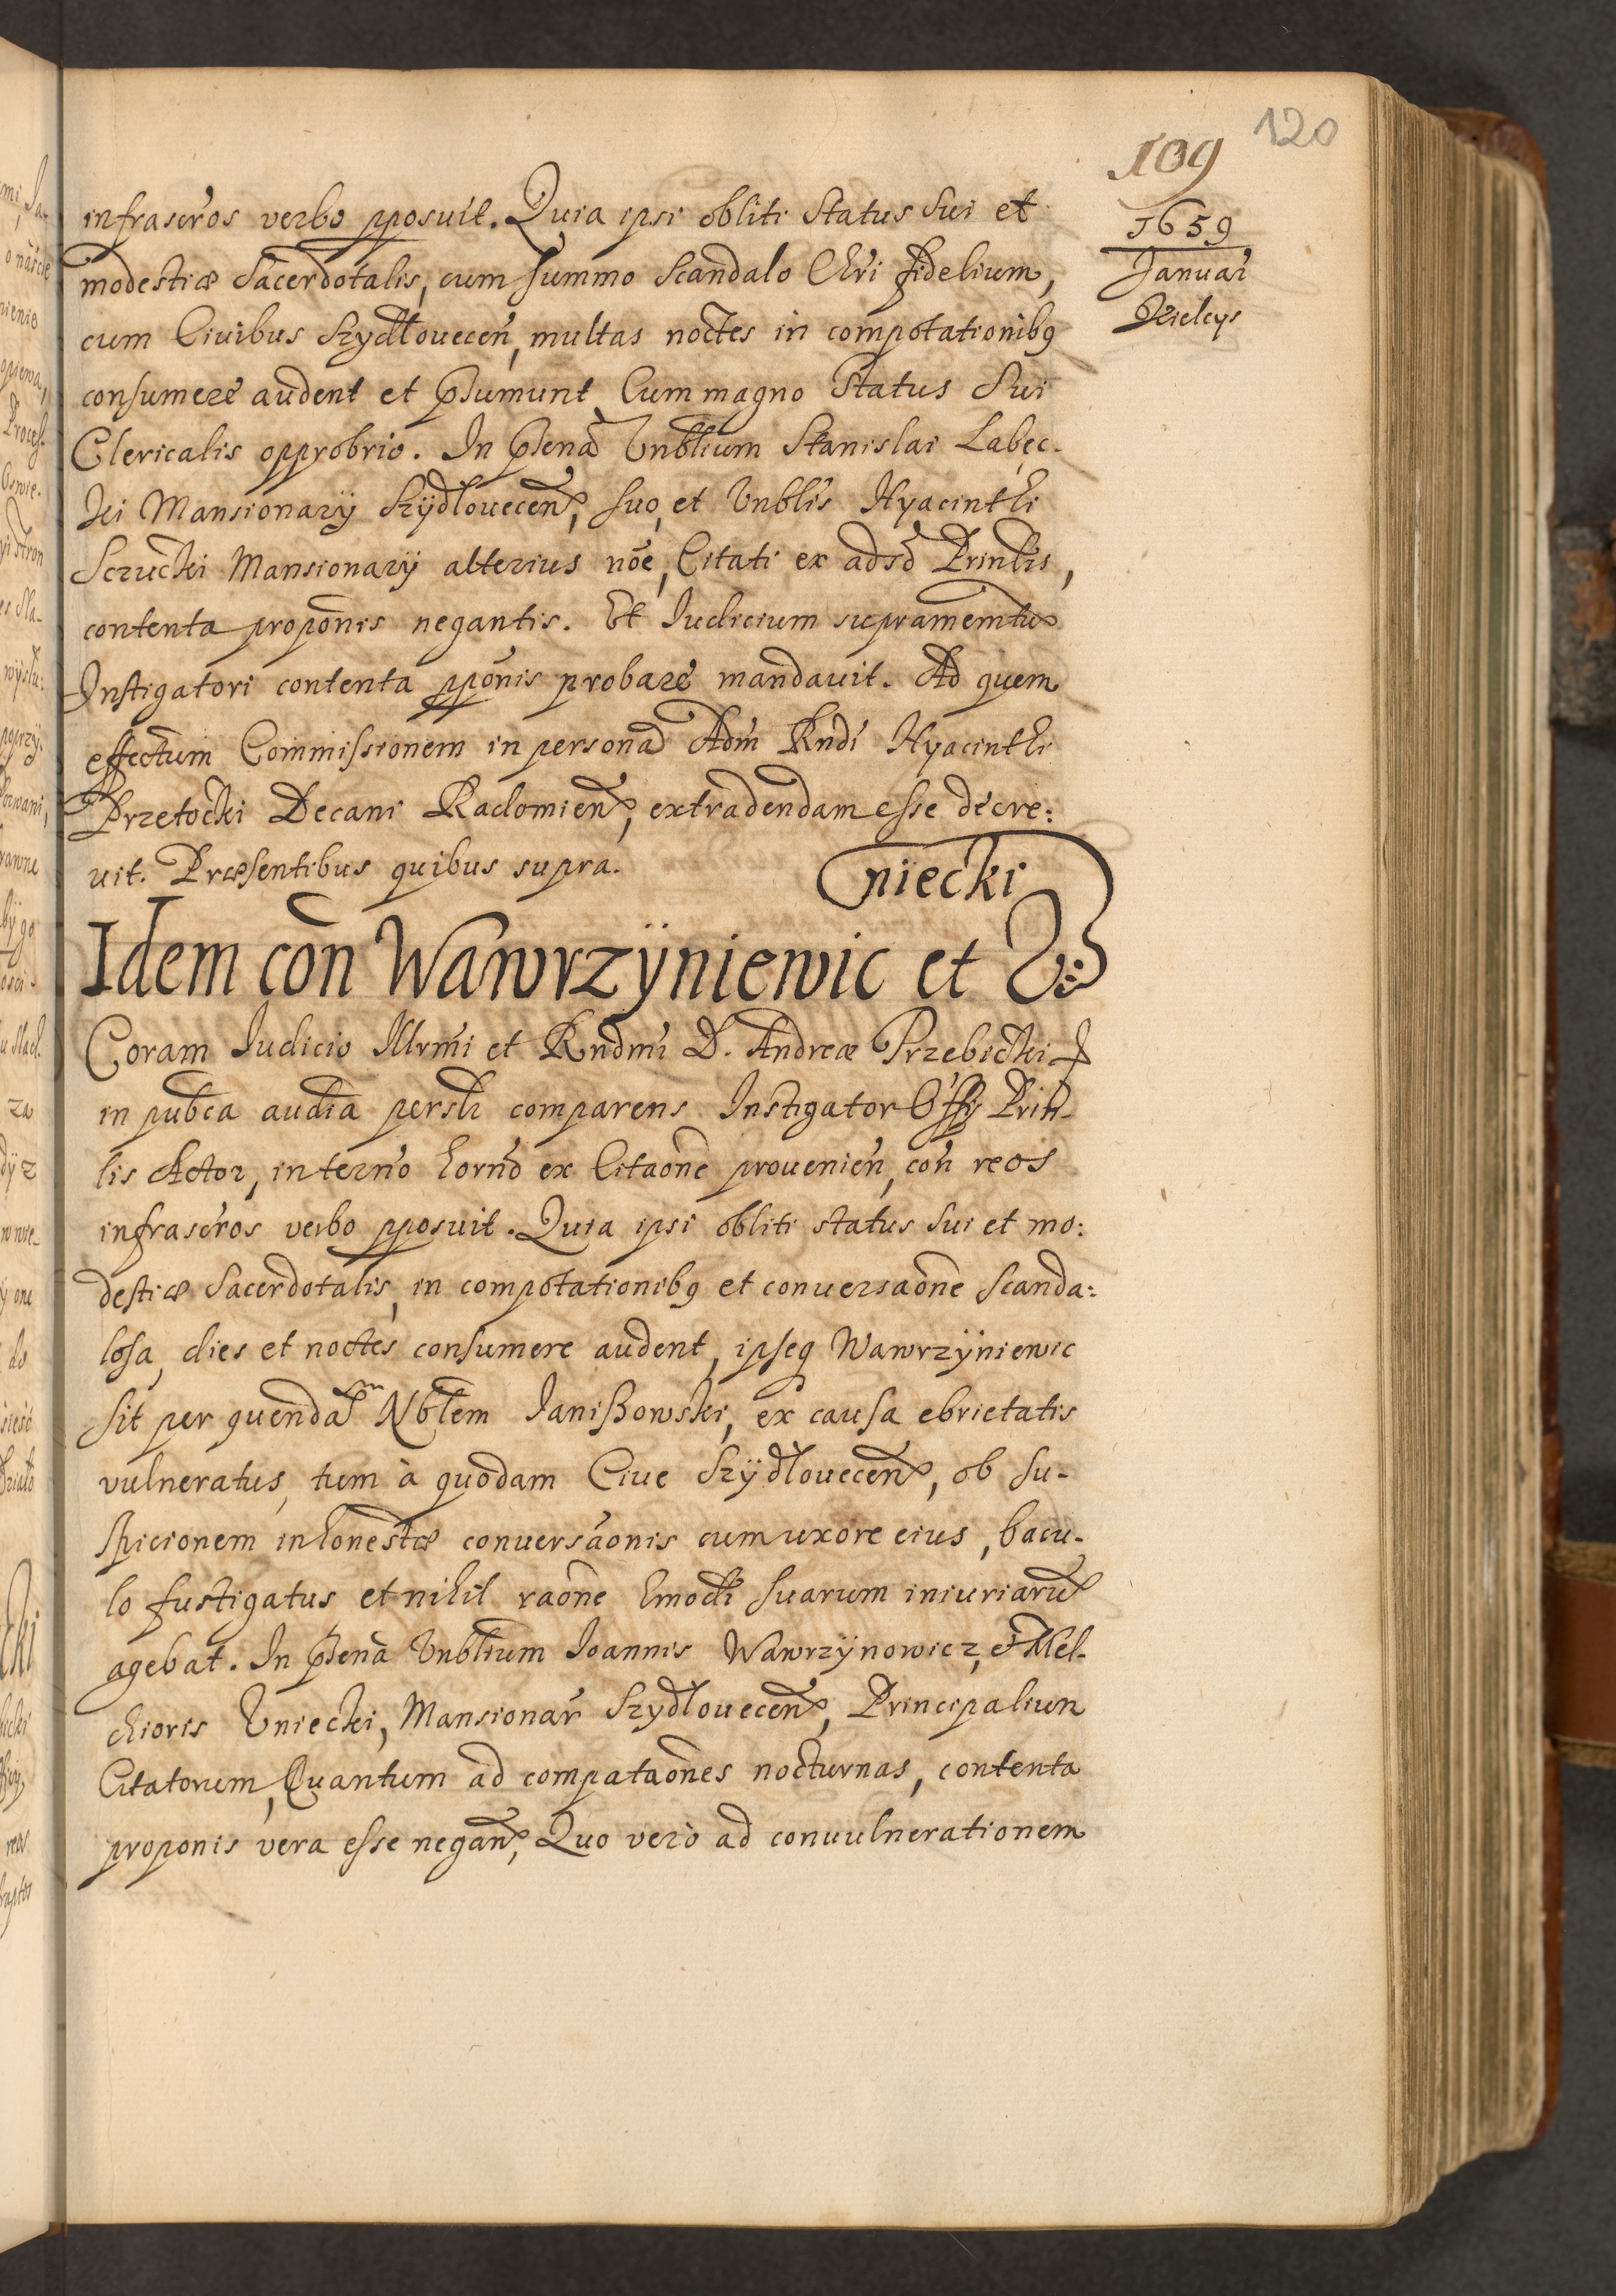 109 120
1659
Januar
Kielcys
infrascros verbo pposuit. Quia ipsi obliti Status Sui et
modestiæ Sacerdotalis, cum summo Scandalo Chri fidelium,
cum Ciuibus Szydłouecen, multas noctes in compotationibq
consumere audent et psumunt Cum magno Status Sui
Clericalis opprobrio. In psena Vnblium Stanislai Labęc-
ki Mansionarÿ Szÿdłouecen, suo, et Vnblis Hyacinthi
Scrucki Mansionarÿ alterius nõe, Citati ex adso Prinlis,
contenta proponis negantis. Et Iudicium supramemtu
Instigatori contenta pponis probare mandauit. Ad quem
effectum Commissionem in persona Adm Rndi Hyacinthi
Przetocki Decani Radomien, extradendam esse decre:
uit. Præsentibus quibus supra.
niecki
Idem con Wawrzÿniewic et V
Coram Iudicio Illrmi et Rndmi D. Andreæ Przebicki
in pubca audia persh comparens Instigator Offy Prin-
lis Actor, in terno horno ex Citaone prouenien, con reos
infrascros verbo pposuit. Quia ipsi obliti status sui et mo:
destiæ Sacerdotalis, in compotationibq et conuersaone scanda:
losa, dies et noctes consumere audent, ipseq Wawrzÿniewic
sit per quendam Nblem Ianiszowski, ex causa ebrietatis
vulneratus, tum à quodam Ciue Szÿdłouecen, ob su-
spicionem inhonestæ conuersaonis cum uxore eius, bacu-
lo fustigatus et nihil raone hmodi suarum iniuriaru
agebat. In psena Vnblium Ioannis Wawrzÿnowicz, et Mel-
chioris Vniecki, Mansionar Szydłouecen, Principalium
Citatorum, Quantum ad compataones nocturnas, contenta
proponis vera esse negan, Quo verò ad conuulnerationem